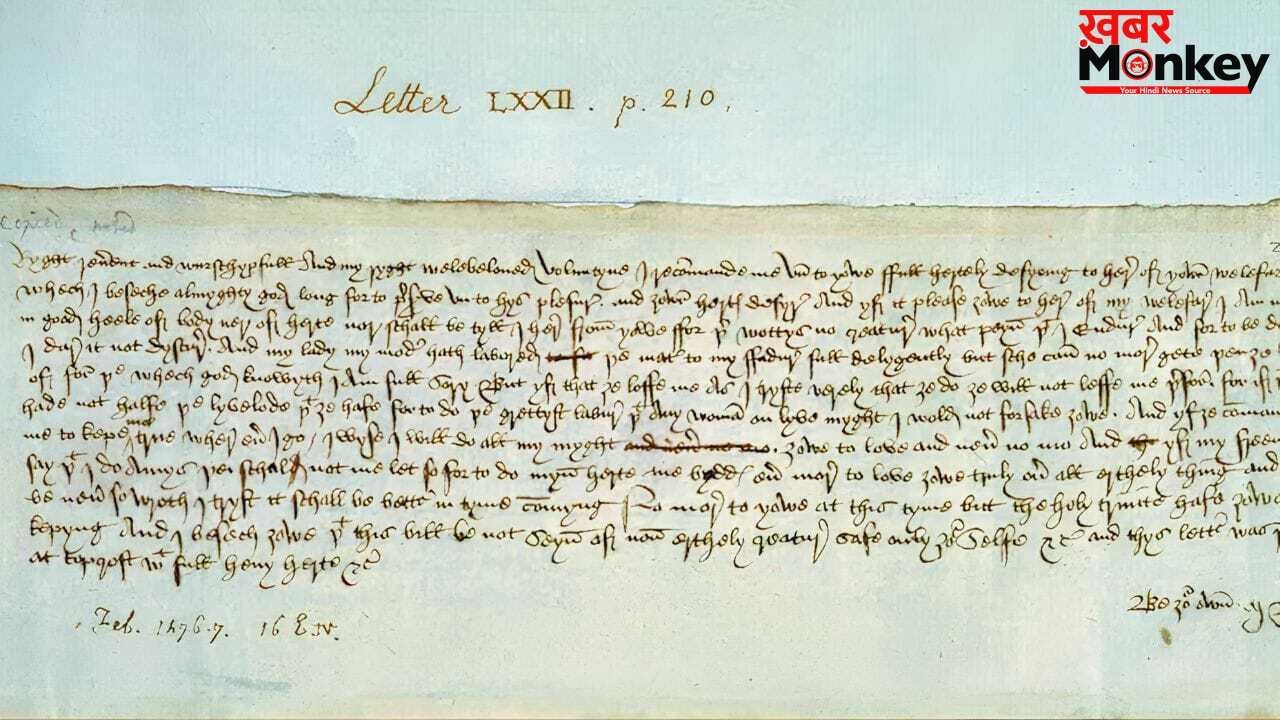 ख़बर
Monkey
Your Hindi News Source
Letter LXXII. p. 210.
copied
Ryght reverent and wurschypfull And my ryght welebeloued Voluntyne I recomande me vn to yowe ffull hertely desyring to her of yowr welefar
whech I beseche almyghty god long for to preserve vn to hys plesur. and zowr hertes desyr And yf it please zowe to her of my welefar I Am
in good heele of body ner of herte nor schall be tyll I her from yowe ffor þer wottys no creatur what peyn þt I Endur And for to be
I dar it not dyscur. And my lady my moder hath labored þe mater to my ffadur full delygently but sche can no mor gete þen ze
of for þe whech god knowyth I Am full Sory But yf that ze loffe me As I tryste verely that ze do ze will not leffe me þerfor. for if
hade not halfe þe lyvelode þt ze hafe for to do þe grettyst labur þt Any woman on lyve myght I wold not forsake zowe. And yf ze comand
me to kepe me true wher euer I go, I wyse I will do all my myght zowe to love and neuer no mo And yf my freendys
say þt I do Amys þei schal not me let so for to do myn herte me bydds euer mor to love zowe truly ouer all erthely thing and
be neuer so wroth I tryst it schall be better in tyme comyng No mor to yowe at this tyme but the holy trinite hafe zowe
kepyng And I besech zowe þt this bill be not Seyn of non erthely creatur safe only zour Selfe &c and thys letter was
at topcroft wt full hevy herte &c
Be zour own
Feb. 1476-7. 16 E. IV.